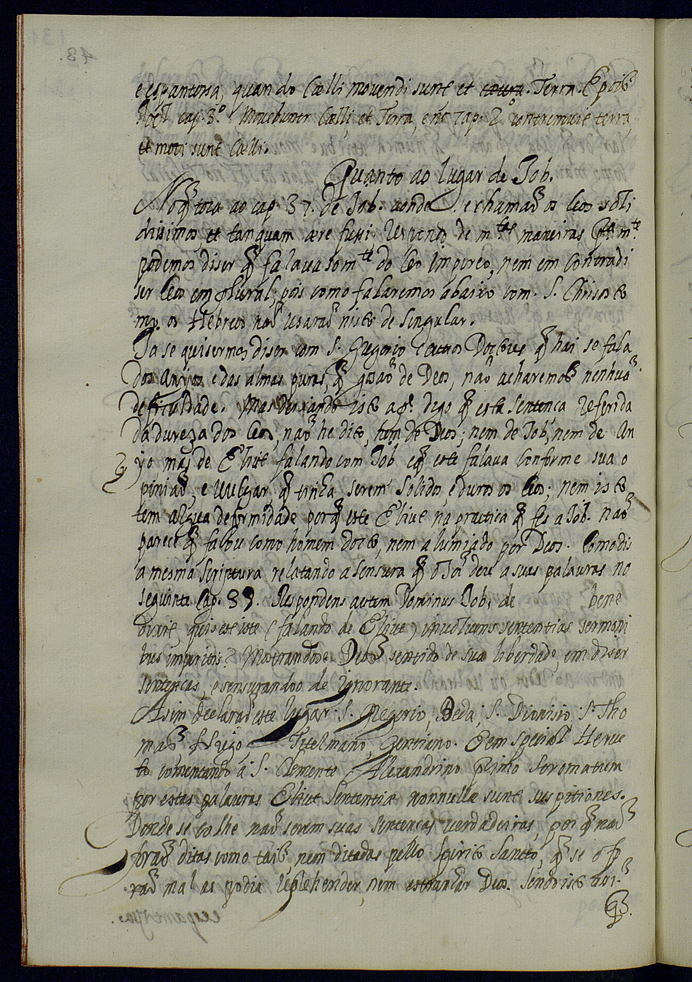 e espantosa, quando Cælli movendi sunt et terra. Terra &
Joel cap. 3.º Movebuntur Cælli, et Terra, e no cap. 2.º contremuit terra,
et moti sunt Cælli.
Quanto ao lugar de Job.
No q̃ toca ao cap. 37. de Job. aonde se chamaõ os Ceos soli
dissimos et tanquam ære fusi. Respondo de m.tas maneiras
podemos diser q̃ falava som.te do Ceo Impereo, nem em contradi
ser Ceos em plural, pois como falaremos abaixo com S. Chrisosto
mo. os Hebreos naõ usaraõ nisto de singular.
Ja se quisermos diser com S. Gregorio e outros Doctores q̃ hai se fala
dos Anjos, e das almas puras, q̃ gosaõ de Deos, naõ acharemos nenhuã
deficuldade. Mas deixando isto aª. digo q̃ esta sentença referida
da dureza dos Ceos, naõ he dito, nem de Deos; nem de Job, nem de An
jo mas de Eliut falando com Job. e q̃ este falava conforme sua o
piniaõ, e vulgar q̃ tinha, serem solidos, e duros os Ceos; nem isto
tem algũa deformidade porq̃ este Eliut na practica q̃ fes a Job. naõ
parece q̃ falou como homem docto, nem alumiado por Deos. Como dis
a mesma scriptura, relatando a sensura q̃ o Sõr deu a suas palauras no
seguinte Cap. 38. Respondens autem Dominus Job, de bene
dixit, quis est iste (falando de Eliut) involvens sententias sermoni
bus imperitis? Mostrandose Deos sentido de sua liberdade, em diser
sentenças, e sensurandoo de ignorante.
Assim declaraõ este lugar S. Gregorio, Beda, S. Dionisio S. Tho
mas, Hugo Titelmano, Gentiano. E em special Herue
to comentando a S. Clemente Alexandrino Primo Stromatum
por estas palauras Eliut sententiæ nonnullæ sunt suspitiones.
Donde se colhe naõ serem suas sentenças verdadeiras por q̃ naõ
foraõ ditas como tais nem ditadas pello spirito sancto, q̃ se o fo
raõ mal as podia reprehender, nem estranhar Deos. Sendo isto assi
q̃